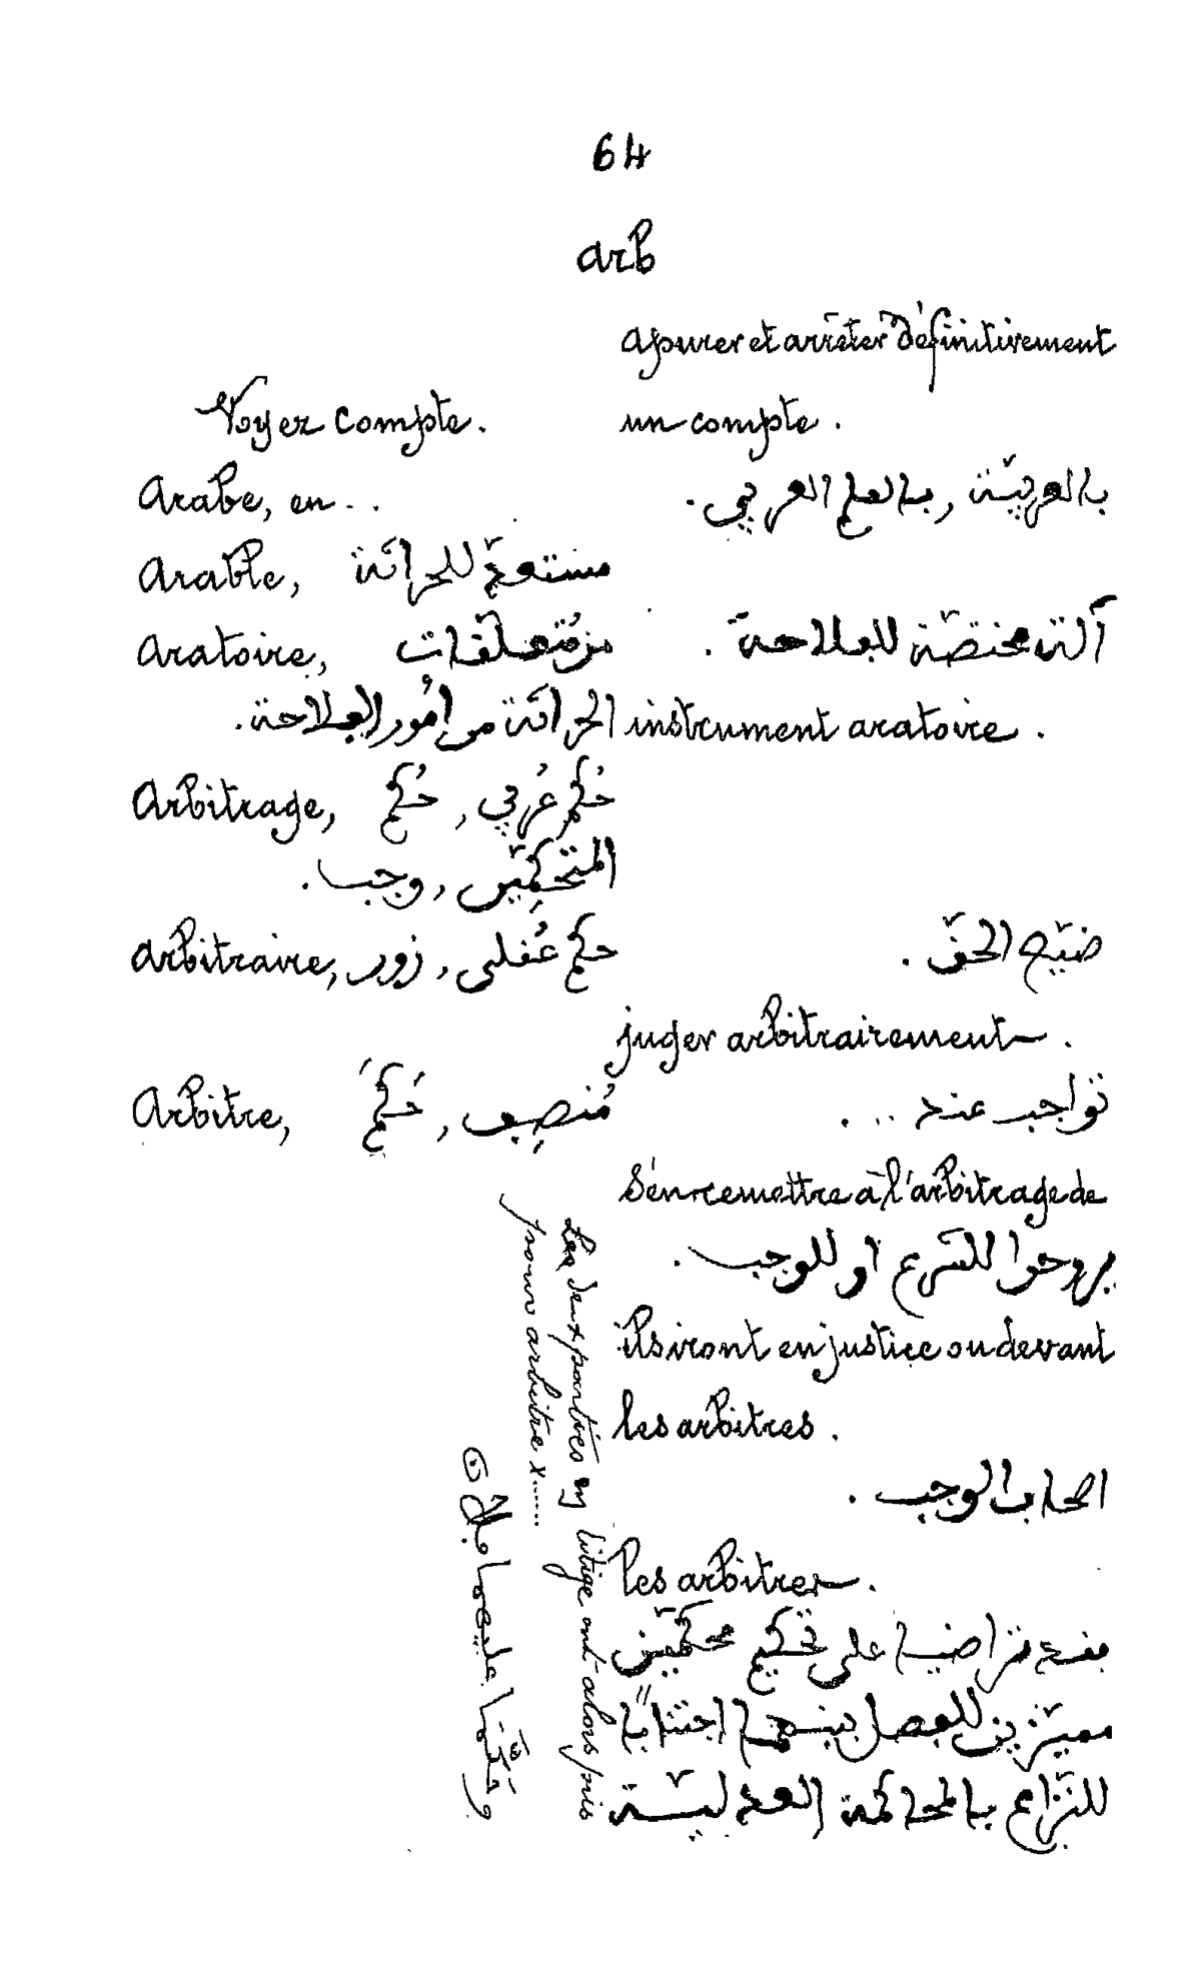 64
arb
apurer et arrêter définitivement
Voyez compte. un compte.
Arabe, en... بالعربيّة, بالعلم العربي.
Arable, مستعدّ للحراثة
Aratoire, من متعلّفات آلة مختصّة للبلاحة.
الحراثة من امُور البلاحة. instrument aratoire.
Arbitrage, حُكم عُرفي, حُكم
المتحكِمّين, وجب.
arbitraire, حكم عُفلي, زور, ضيّع الحقّ.
juger arbitrairement.
Arbitre, مُنصِف, حَكَم تواجب عند ...
s'en remettre à l'arbitrage de
يروحوا للشرع أو للوجب.
ils iront en justice ou devant
les arbitres.
اصحاب الوجب.
les arbitres.
بفد تراضيا على تحكيم محكمّين
مميّزين للبصل بينهما اجتنابًا
للنّزاع بالمحاكمة العدليّة
وحَكَّمَا عليهما فلان
Les deux parties en litige ont alors pris
pour arbitre x......